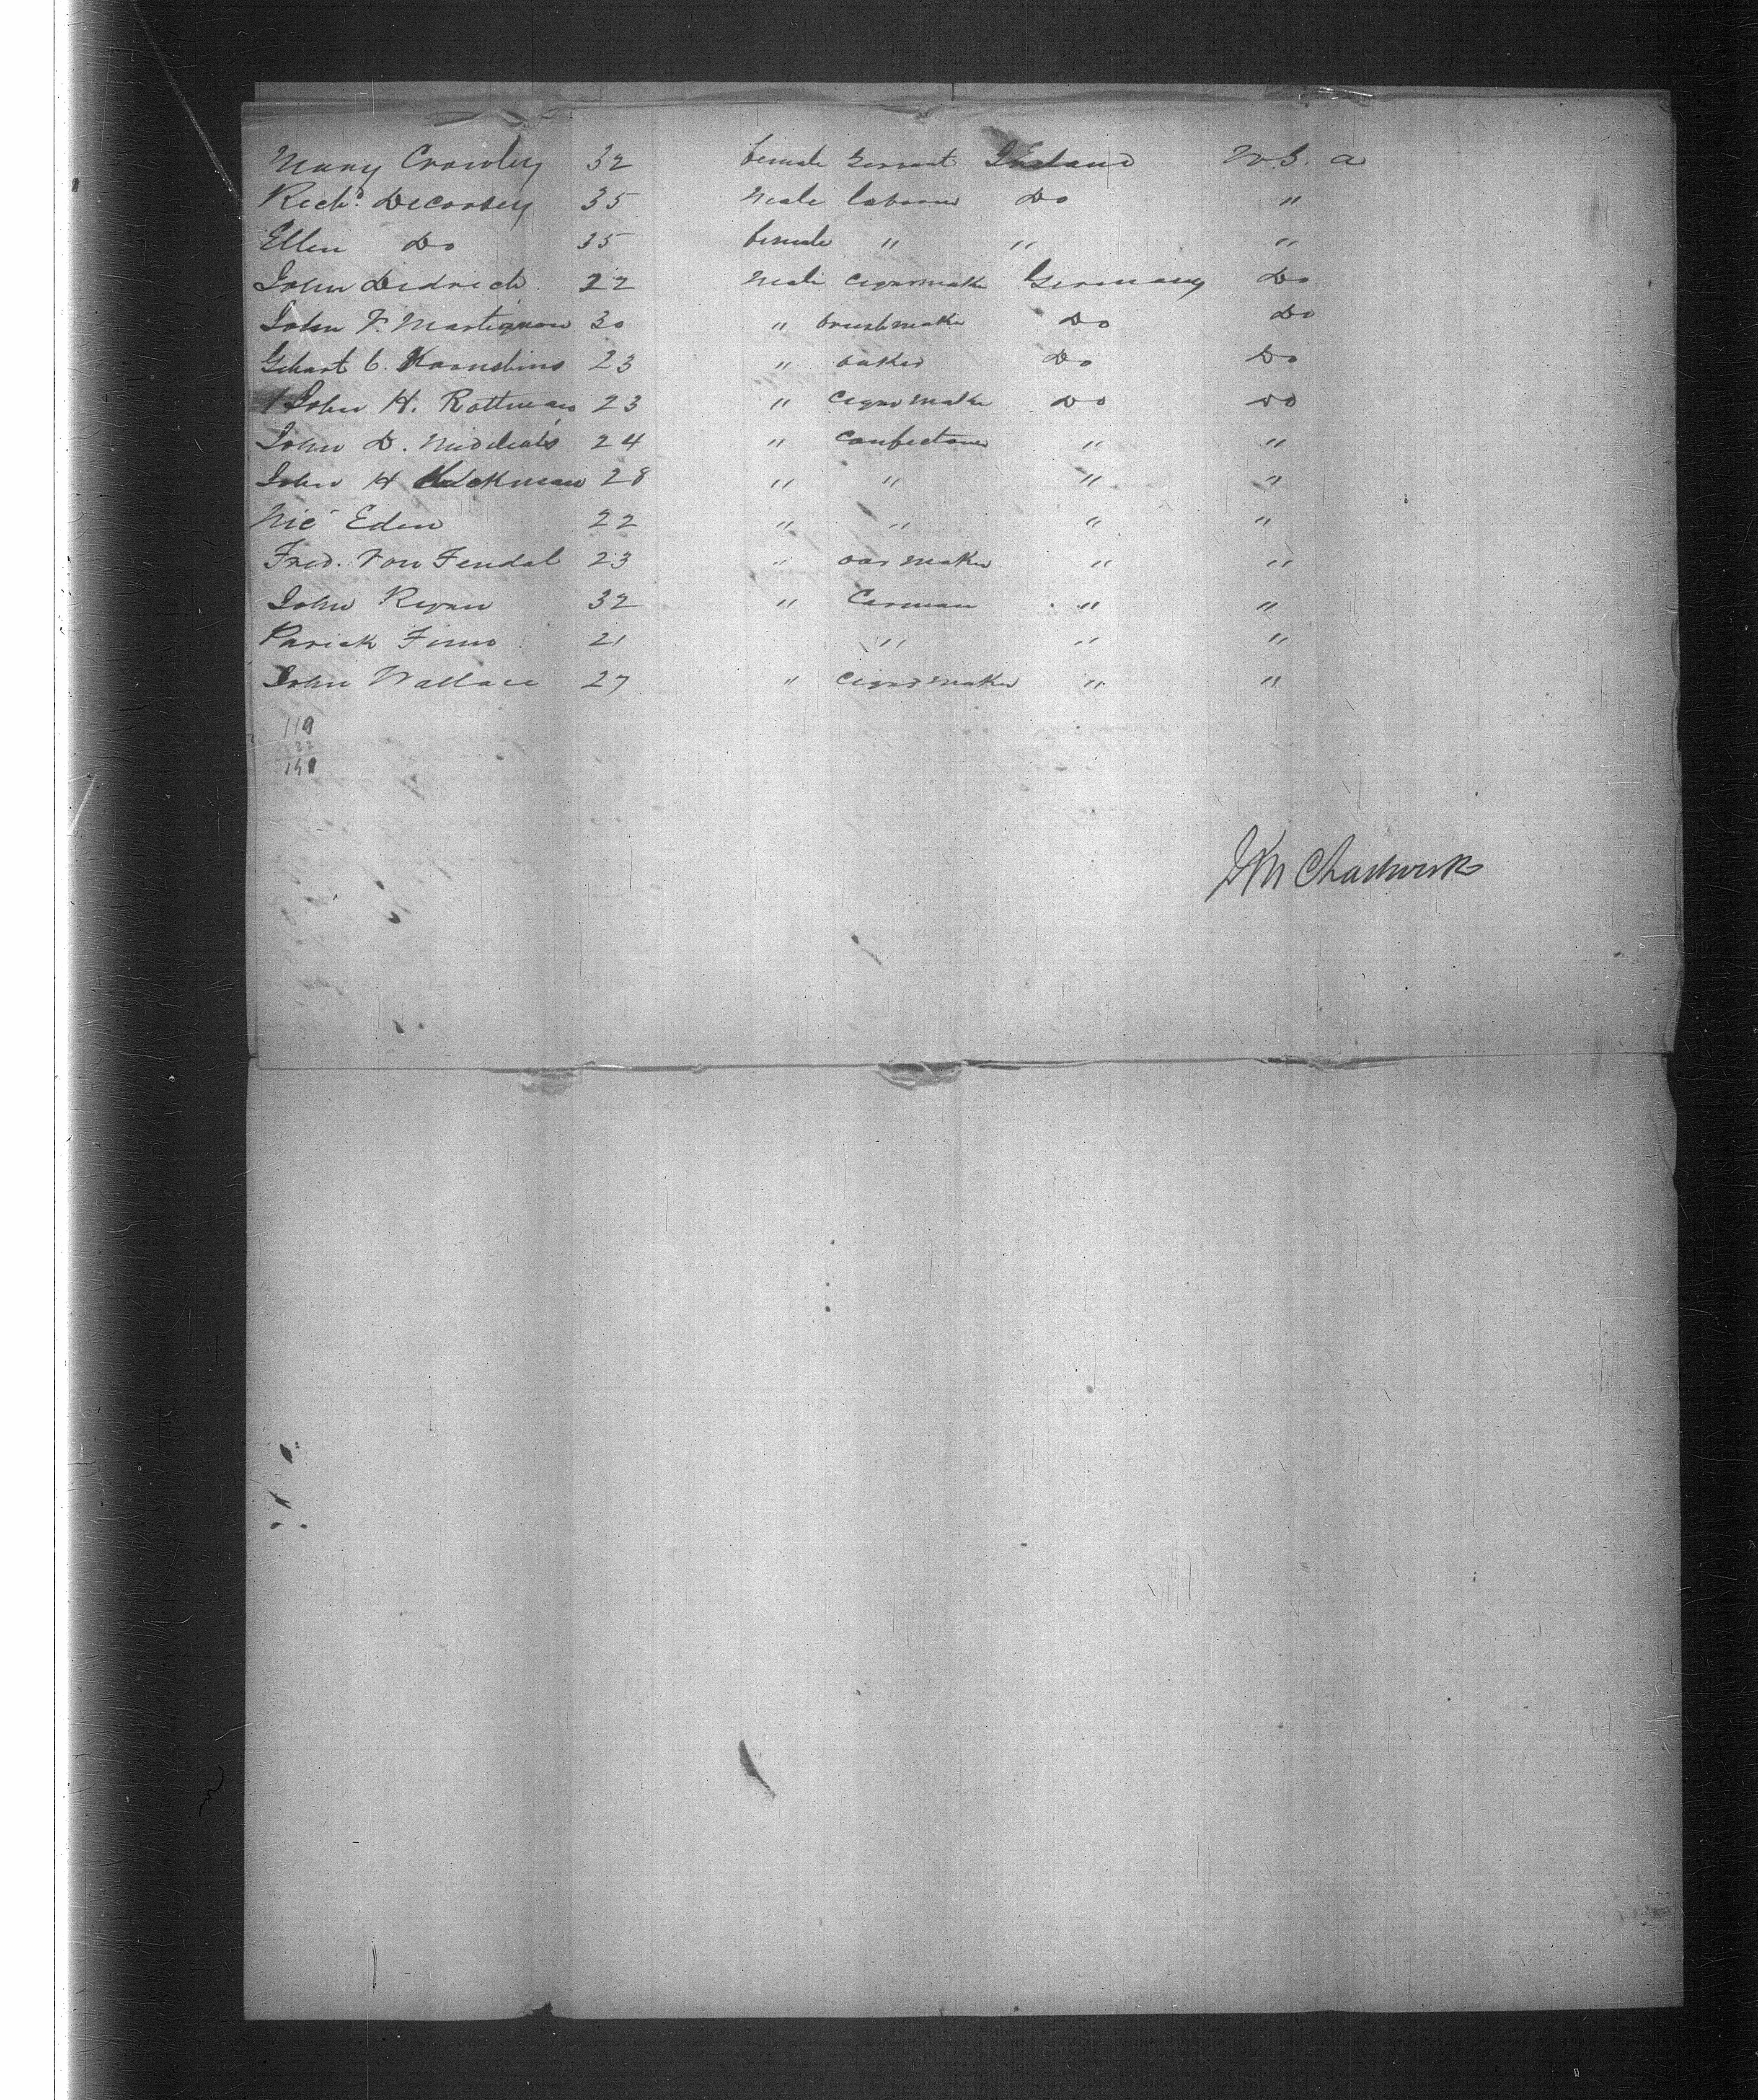 Mary Crowley 32 female Servant Ireland U.S. a
Rich.d DeCorsey 35 Male laborer Do "
Ellen Do 35 female " " "
John Dedrich. 22 Male Cigarmaker Germany Do
John F. Martignon 30 " brushmaker Do Do
Gehart C. Kornelius 23 " baker Do Do
John H. Rottman 23 " Cigar maker Do Do
John D. 24 " Confectoner " "
John H 28 " " " "
Nic Eden 22 " " " "
Fred. Von Fendal 23 " oar maker " "
John Ryan 32 " Carman " "
Parick Finno 21 " " "
John Wallace 27 " Cigar maker " "
119
22
141
Chadwick